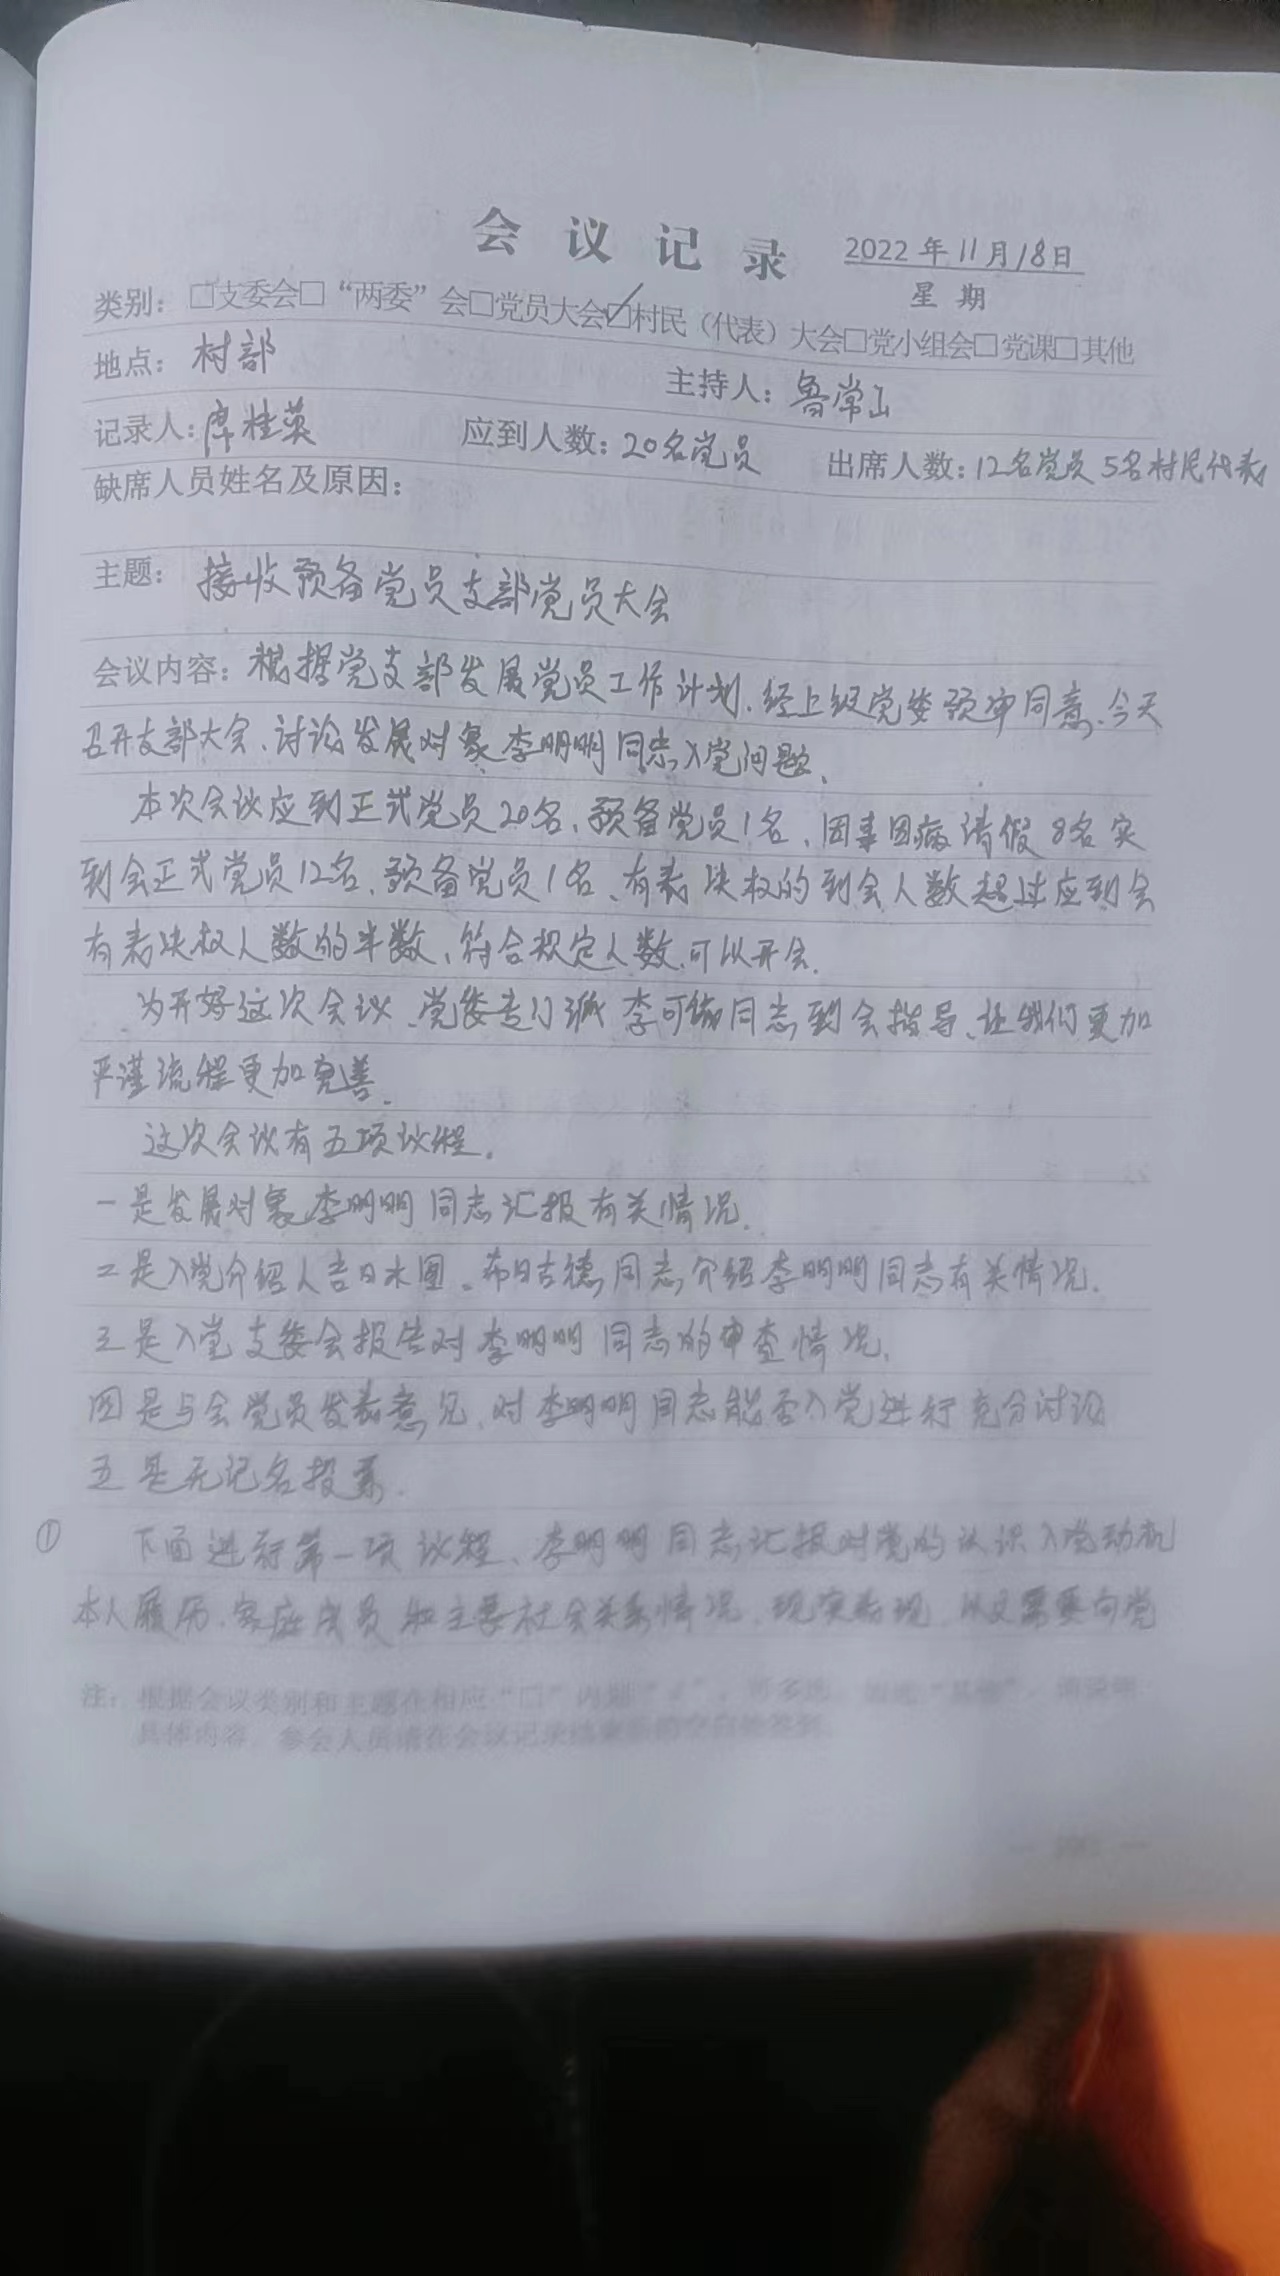 会议记录 2022年11月18日
星期
类别：□支委会□“两委”会□党员大会☑村民（代表）大会□党小组会□党课□其他
地点：村部 主持人：鲁常山
记录人：席桂英 应到人数：20名党员 出席人数：12名党员5名村民代表
缺席人员姓名及原因：
主题：接收预备党员支部党员大会
会议内容：根据党支部发展党员工作计划、经上级党委预审同意、今天
召开支部大会、讨论发展对象李明明同志入党问题、
本次会议应到正式党员20名、预备党员1名、因事因病请假8名实
到会正式党员12名、预备党员1名、有表决权的到会人数超过应到会
有表决权人数的半数、符合规定人数、可以开会.
为开好这次会议、党委专门派李可 同志到会指导、让我们更加
严谨流程更加完善.
这次会议有五项议程.
一是发展对象李明明同志汇报有关情况.
二是入党介绍人吉日木图、布日古德同志介绍李明明同志有关情况.
三是入党支委会报告对李明明同志的审查情况.
四是与会党员发表意见、对李明明同志能否入党进行充分讨论
五是无记名投票.
① 下面进行第一项议程、李明明同志汇报对党的认识入党动机
本人履历、家庭成员和主要社会关系情况、现实表现、以及需要向党
注：根据会议类别和主题在相应“□”内划“✓”，可多选，如选“其他”，请说明
具体内容，参会人员请在会议记录结束后的空白处签到。